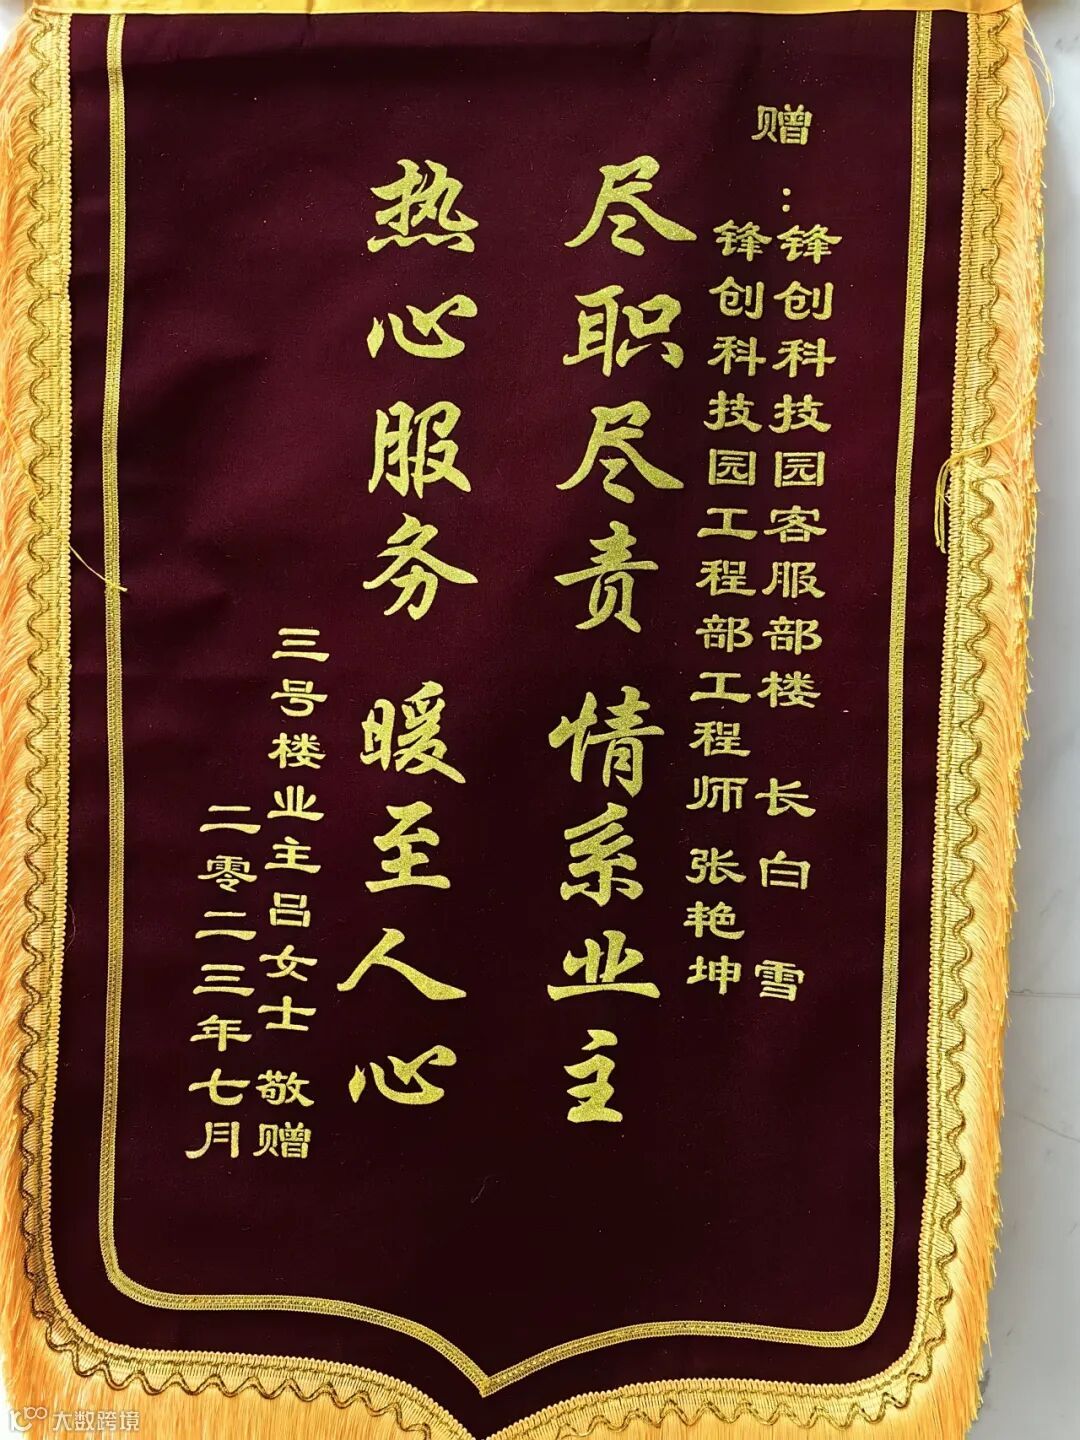 赠：锋创科技园客服部楼 长 白 雪
锋创科技园工程部工程师 张艳坤
尽职尽责 情系业主
热心服务 暖至人心
三号楼业主吕女士 敬赠
二零二三年七月
大数跨境